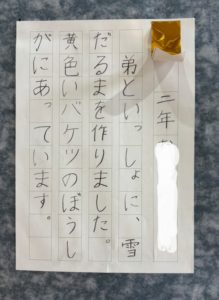 二年
弟といっしょに、雪
だるまを作りました。
黄色いバケツのぼうし
がにあっています。